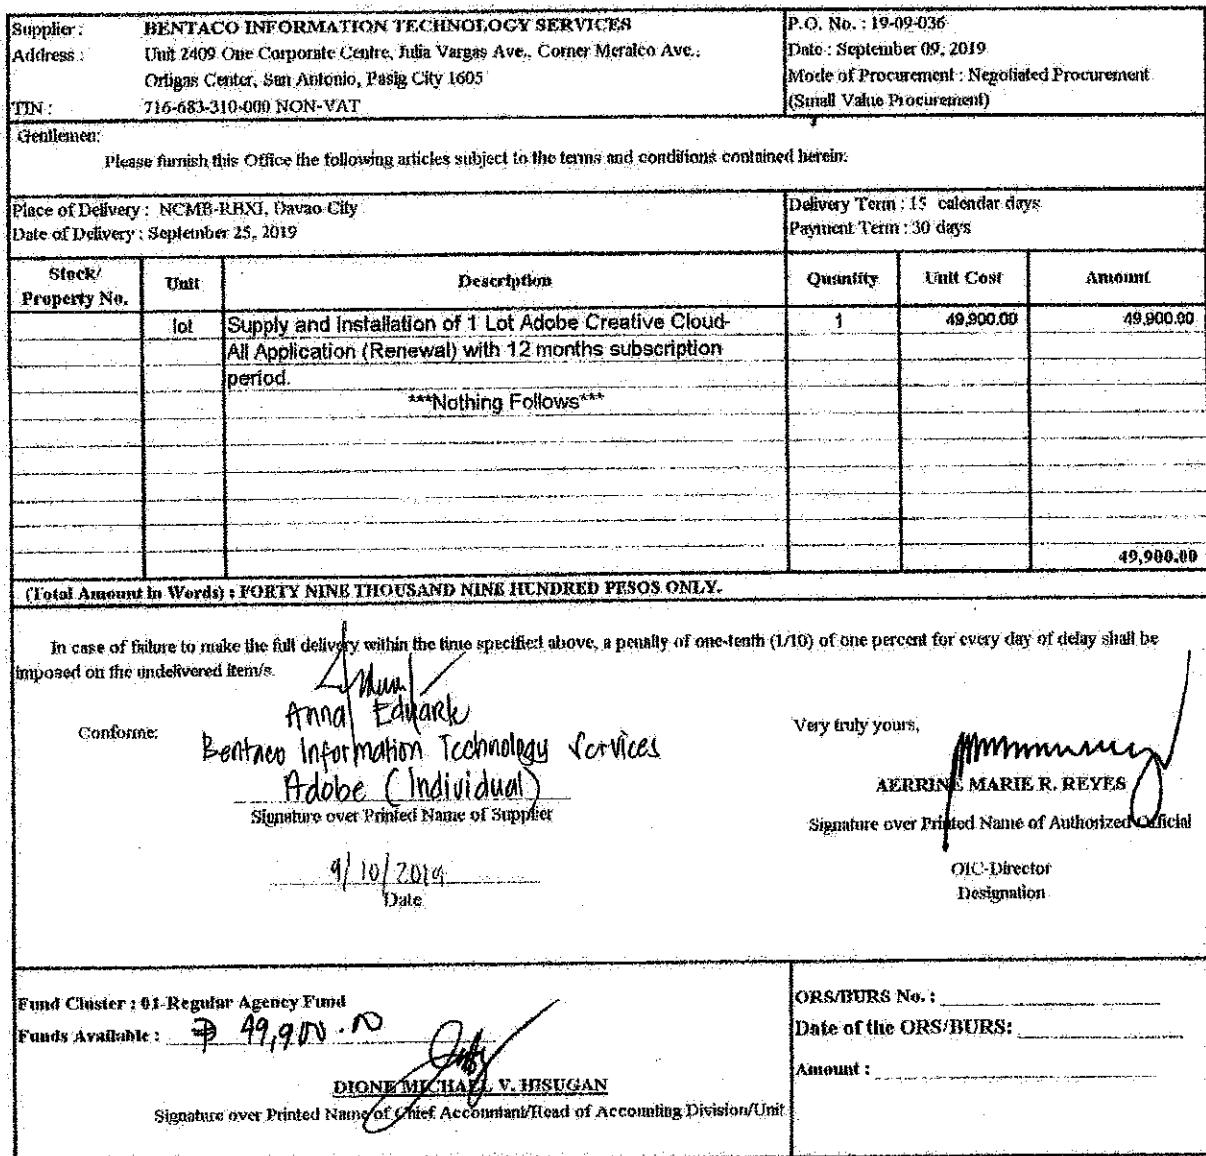 Supplier : BENTACO INFORMATION TECHNOLOGY SERVICES
Address : Unit 2409 One Corporate Centre, Julia Vargas Ave., Corner Meralco Ave.,
Ortigas Center, San Antonio, Pasig City 1605
TIN : 716-683-310-000 NON-VAT
P.O. No. : 19-09-036
Date : September 09, 2019
Mode of Procurement : Negotiated Procurement
(Small Value Procurement)
Gentlemen:
Please furnish this Office the following articles subject to the terms and conditions contained herein:
Place of Delivery : NCMB-RBXI, Davao City
Date of Delivery : September 25, 2019
Delivery Term : 15 calendar days
Payment Term : 30 days
Stock/ Property No. Unit Description Quantity Unit Cost Amount
lot Supply and Installation of 1 Lot Adobe Creative Cloud- 1 49,900.00 49,900.00
All Application (Renewal) with 12 months subscription
period.
***Nothing Follows***
49,900.00
(Total Amount in Words) : FORTY NINE THOUSAND NINE HUNDRED PESOS ONLY.
In case of failure to make the full delivery within the time specified above, a penalty of one-tenth (1/10) of one percent for every day of delay shall be
imposed on the undelivered item/s.
Conforme:
Anna
Bentaco Information Technology Services
Adobe (Individual)
Signature over Printed Name of Supplier
9/10/2019
Date
Very truly yours,
AERRINE MARIE R. REYES
Signature over Printed Name of Authorized Official
OIC-Director
Designation
Fund Cluster : 01-Regular Agency Fund
Funds Available : ₱ 49,900.00
DIONE MICHAEL V. HISUGAN
Signature over Printed Name of Chief Accountant/Head of Accounting Division/Unit
ORS/BURS No. :
Date of the ORS/BURS:
Amount :